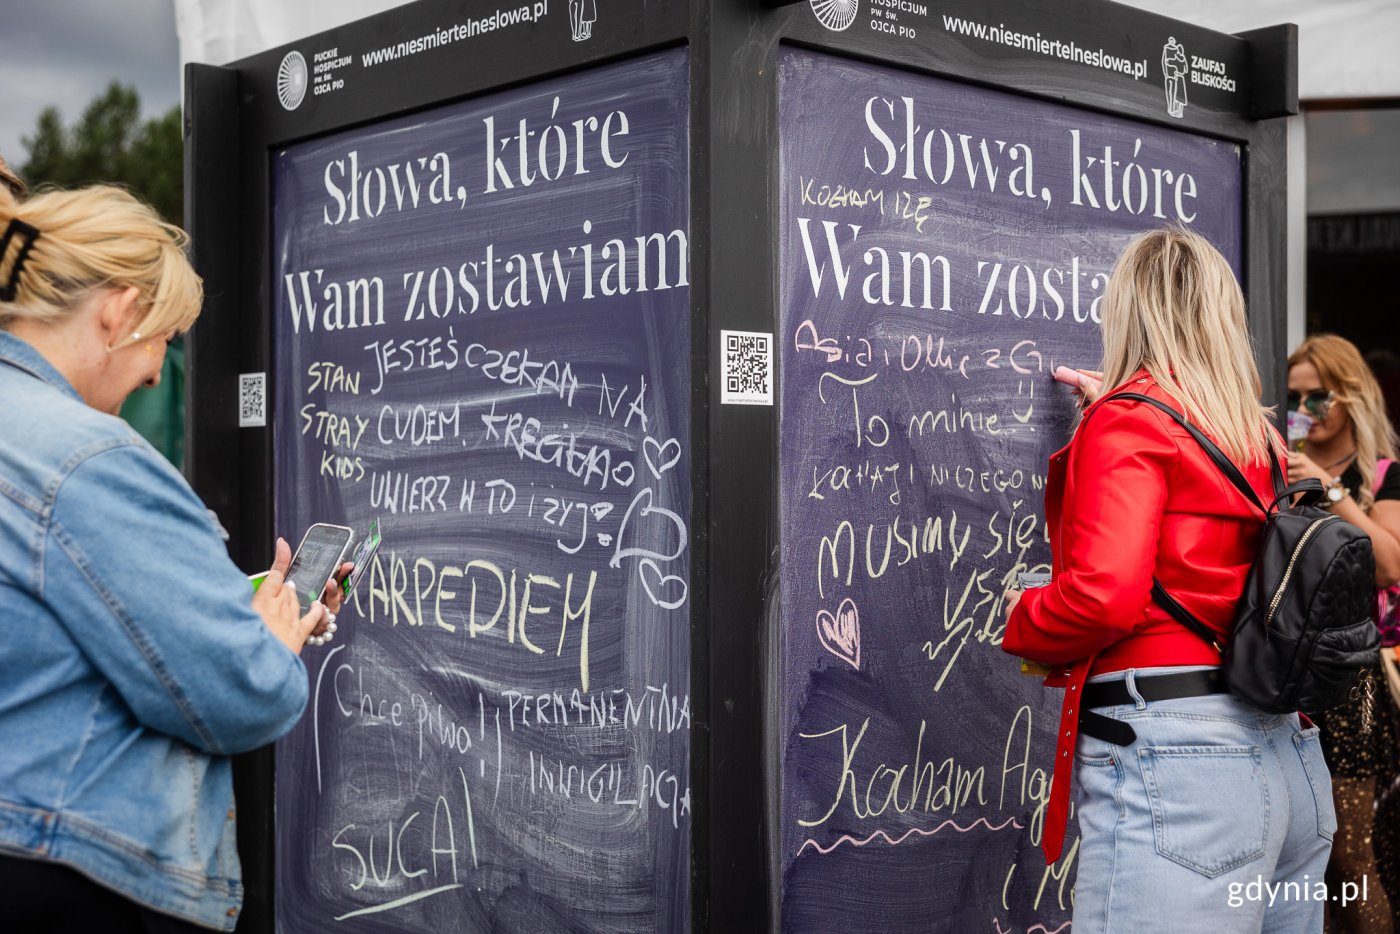 PUCKIE
HOSPICJUM
PW ŚW.
OJCA PIO
www.niesmiertelneslowa.pl
Słowa, które
Wam zostawiam
STAN
STRAY
KIDS
JESTEŚ CZEKAM NA
CUDEM.
UWIERZ W TO i ŻYJ
CARPEDIEM
(Chce Piwa!!)
PERMANENTNA
INWIGILACJA
SUCA!
HOSPICJUM
PW ŚW.
OJCA PIO
www.niesmiertelneslowa.pl
ZAUFAJ
BLISKOŚCI
Słowa, które
KOCHAM IZĘ
Wam zosta
Asia i
To minie
KOCHAJ I NICZEGO
MUSIMY SIĘ
Kocham Ag
i M
gdynia.pl